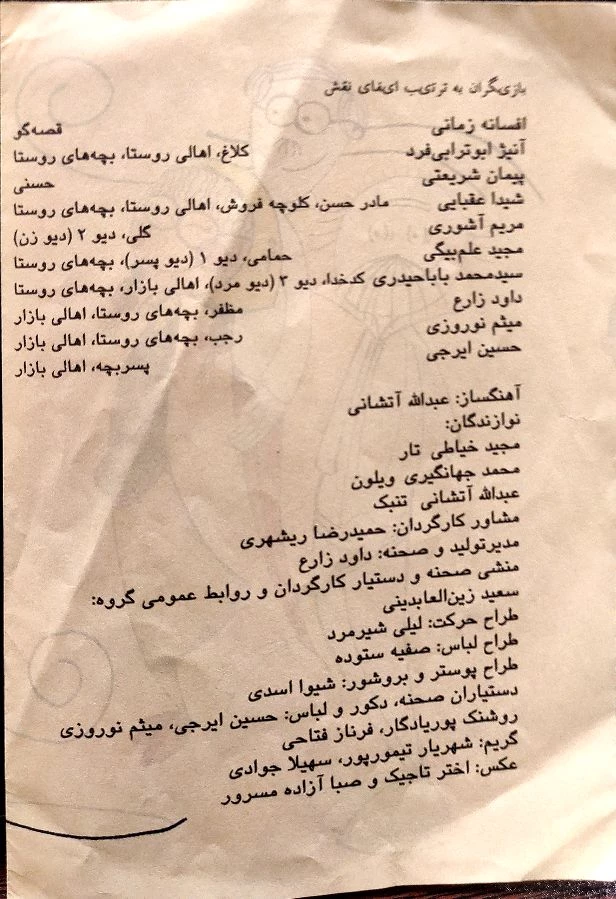 بازیگران به ترتیب ایفای نقش
افسانه زمانی قصه‌گو
آنیژ ابوترابی‌فرد کلاغ، اهالی روستا، بچه‌های روستا
پیمان شریعتی حسنی
شیدا عقبایی مادر حسن، کلوچه فروش، اهالی روستا، بچه‌های روستا
مریم آشوری گلی، دیو ۲ (دیو زن)
مجید علم‌بیگی حمامی، دیو ۱ (دیو پسر)، بچه‌های روستا
سیدمحمد باباحیدری کدخدا، دیو ۳ (دیو مرد)، اهالی بازار، بچه‌های روستا
داود زارع مظفر، بچه‌های روستا، اهالی بازار
میثم نوروزی رجب، بچه‌های روستا، اهالی بازار
حسین ایرجی پسربچه، اهالی بازار
آهنگساز: عبدالله آتشانی
نوازندگان:
مجید خیاطی تار
محمد جهانگیری ویلون
عبدالله آتشانی تنبک
مشاور کارگردان: حمیدرضا ریشهری
مدیرتولید و صحنه: داود زارع
منشی صحنه و دستیار کارگردان و روابط عمومی گروه:
سعید زین‌العابدینی
طراح حرکت: لیلی شیرمرد
طراح لباس: صفیه ستوده
طراح پوستر و بروشور: شیوا اسدی
دستیاران صحنه، دکور و لباس: حسین ایرجی، میثم نوروزی
روشنک پوریادگار، فرناز فتاحی
گریم: شهریار تیمورپور، سهیلا جوادی
عکس: اختر تاجیک و صبا آزاده مسرور